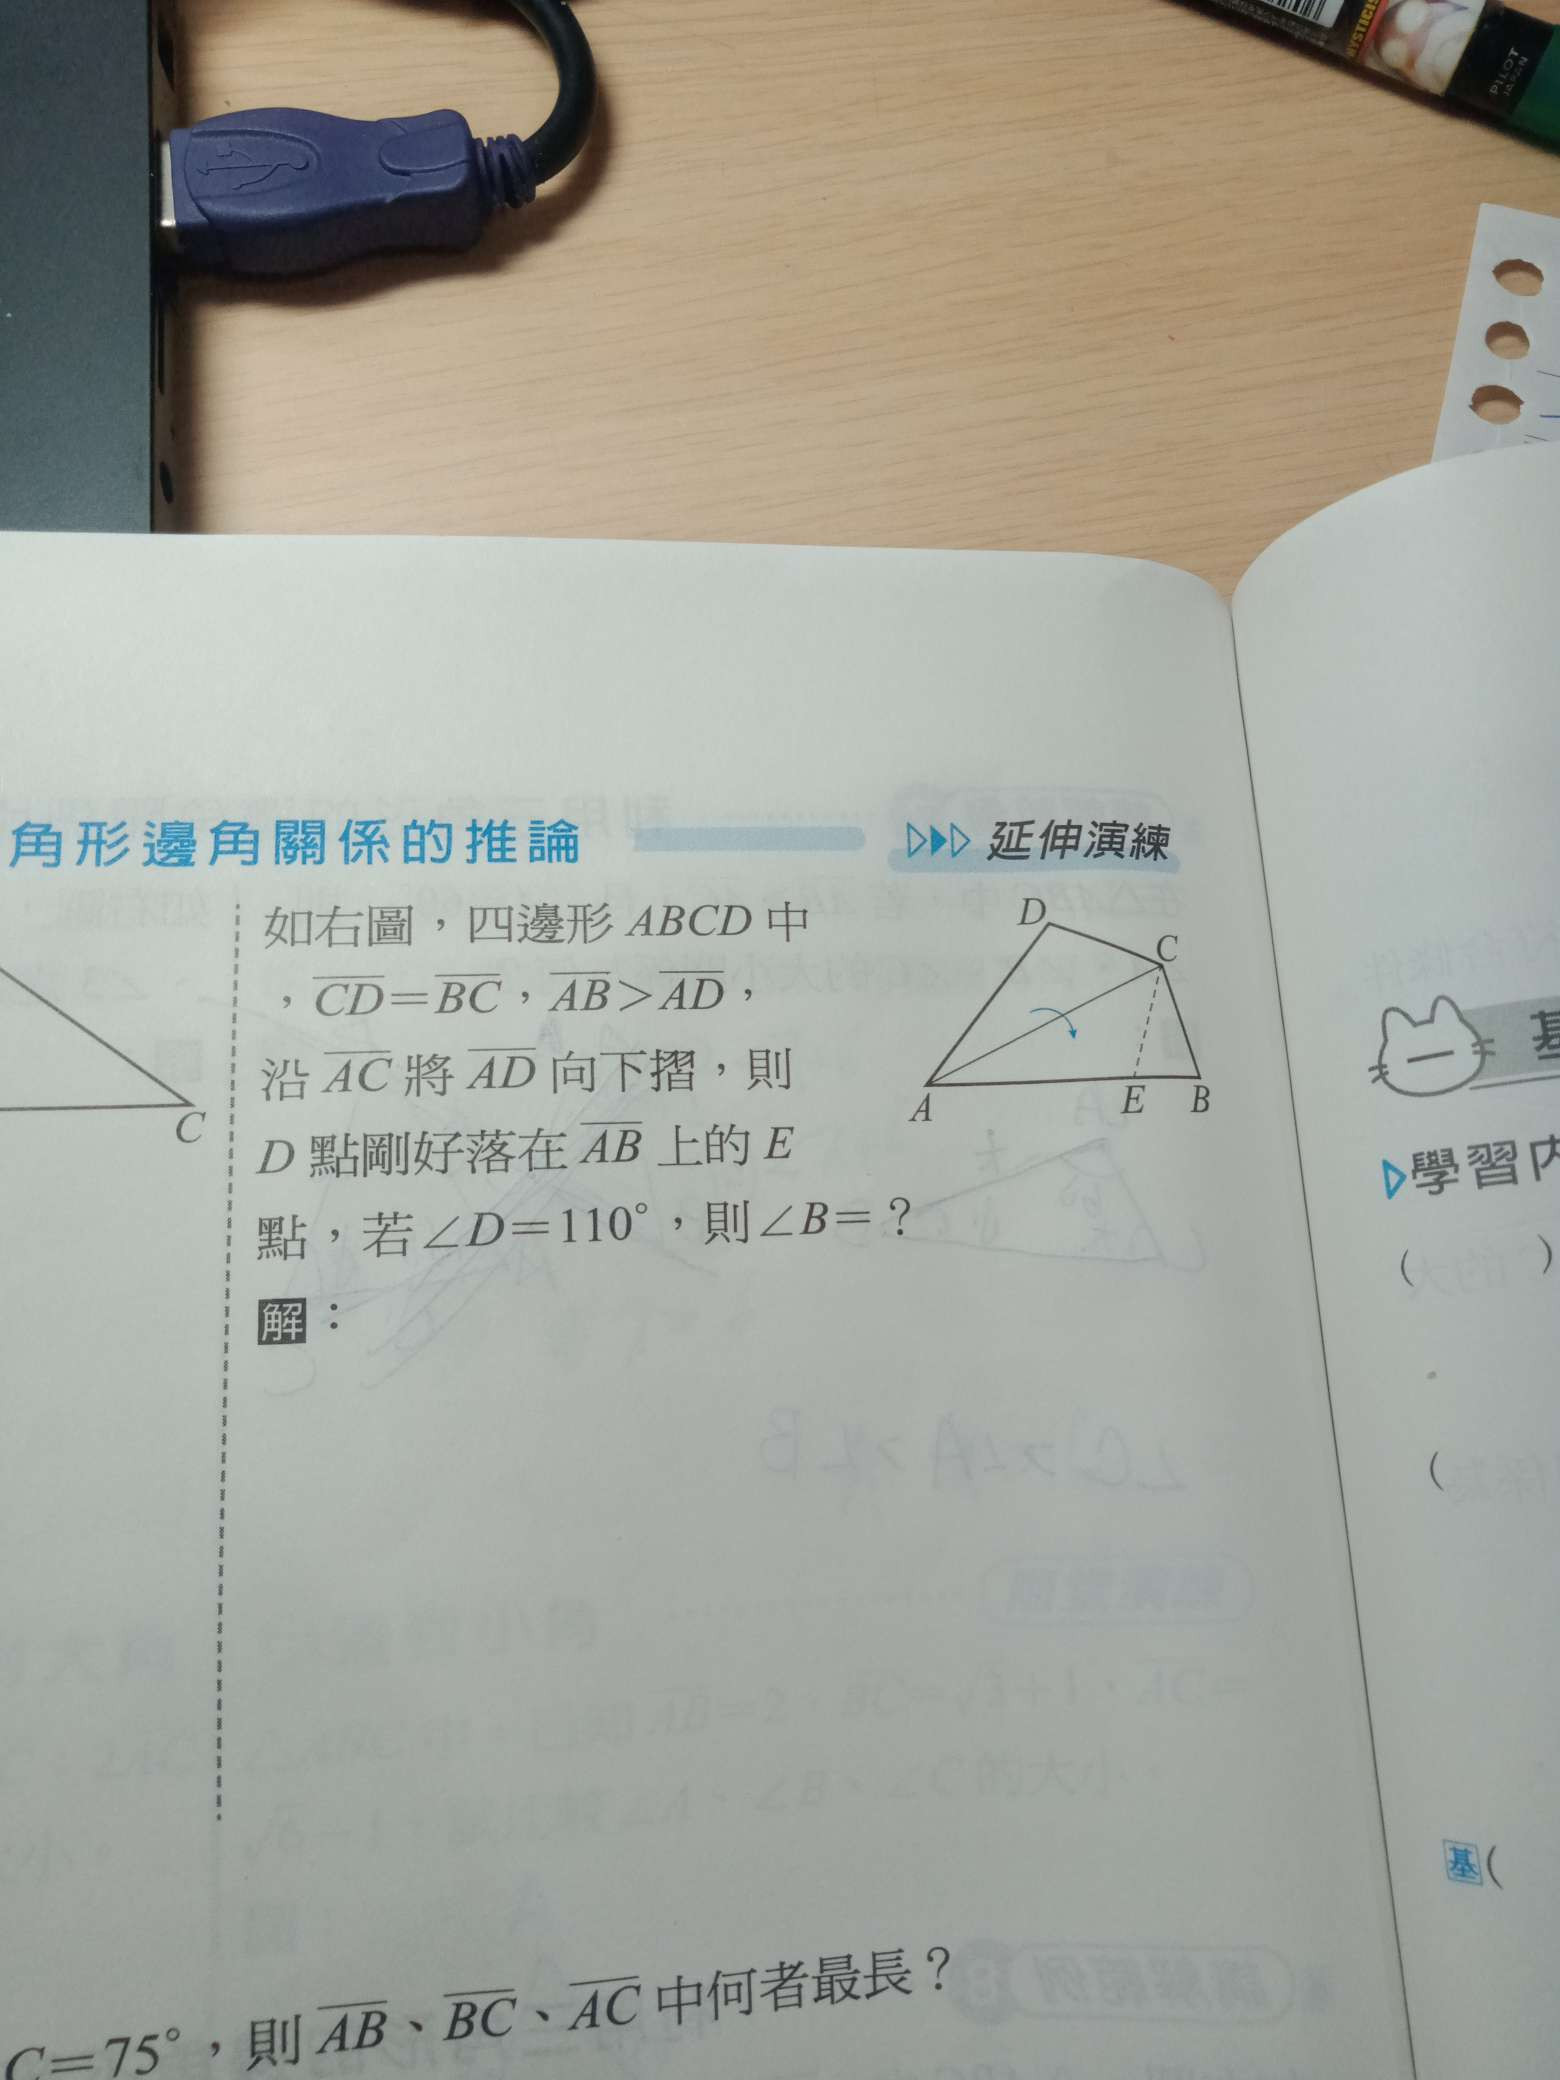 MYSTICIS
PILOT
JAPAN
角形邊角關係的推論
延伸演練
如右圖，四邊形 ABCD 中
，CD＝BC，AB＞AD，
沿 AC 將 AD 向下摺，則
D 點剛好落在 AB 上的 E
點，若∠D＝110°，則∠B＝？
解：
D
C
A
E
B
C
基
一
學習內
(　　)
(
基(
C＝75°，則 AB、BC、AC 中何者最長？